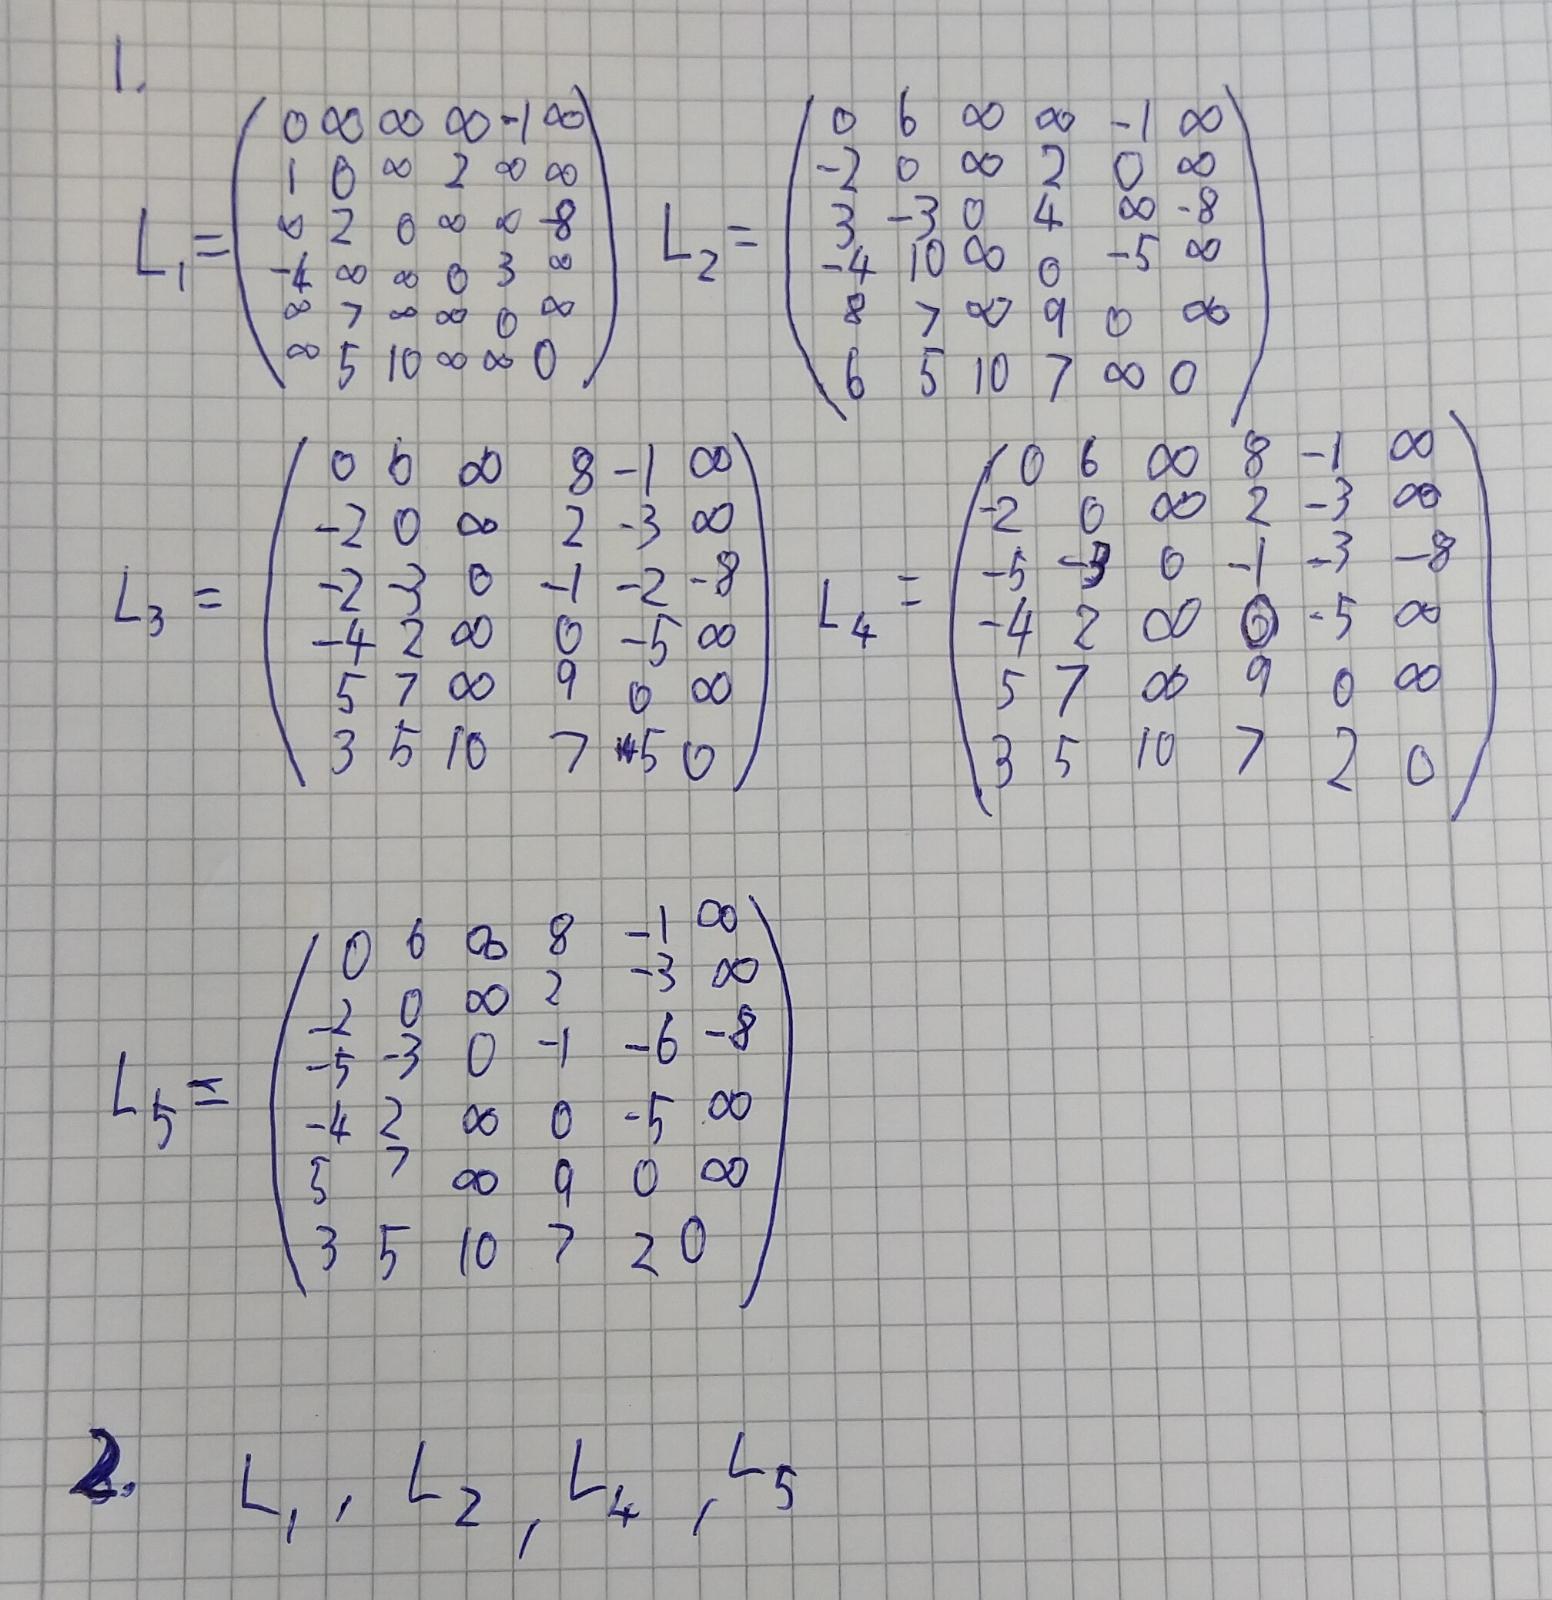 1.
L₁ = ( 0 ∞ ∞ ∞ -1 ∞
1 0 ∞ 2 ∞ ∞
∞ 2 0 ∞ ∞ -8
-4 ∞ ∞ 0 3 ∞
∞ 7 ∞ ∞ 0 ∞
∞ 5 10 ∞ ∞ 0 )
L₂ = ( 0 6 ∞ ∞ -1 ∞
-2 0 ∞ 2 0 ∞
3 -3 0 4 ∞ -8
-4 10 ∞ 0 -5 ∞
8 7 ∞ 9 0 ∞
6 5 10 7 ∞ 0 )
L₃ = ( 0 6 ∞ 8 -1 ∞
-2 0 ∞ 2 -3 ∞
-2 -3 0 -1 -2 -8
-4 2 ∞ 0 -5 ∞
5 7 ∞ 9 0 ∞
3 5 10 7 5 0 )
L₄ = ( 0 6 ∞ 8 -1 ∞
-2 0 ∞ 2 -3 ∞
-5 -3 0 -1 -3 -8
-4 2 ∞ 0 -5 ∞
5 7 ∞ 9 0 ∞
3 5 10 7 2 0 )
L₅ = ( 0 6 ∞ 8 -1 ∞
-2 0 ∞ 2 -3 ∞
-5 -3 0 -1 -6 -8
-4 2 ∞ 0 -5 ∞
5 7 ∞ 9 0 ∞
3 5 10 7 2 0 )
2. L₁, L₂, L₄, L₅